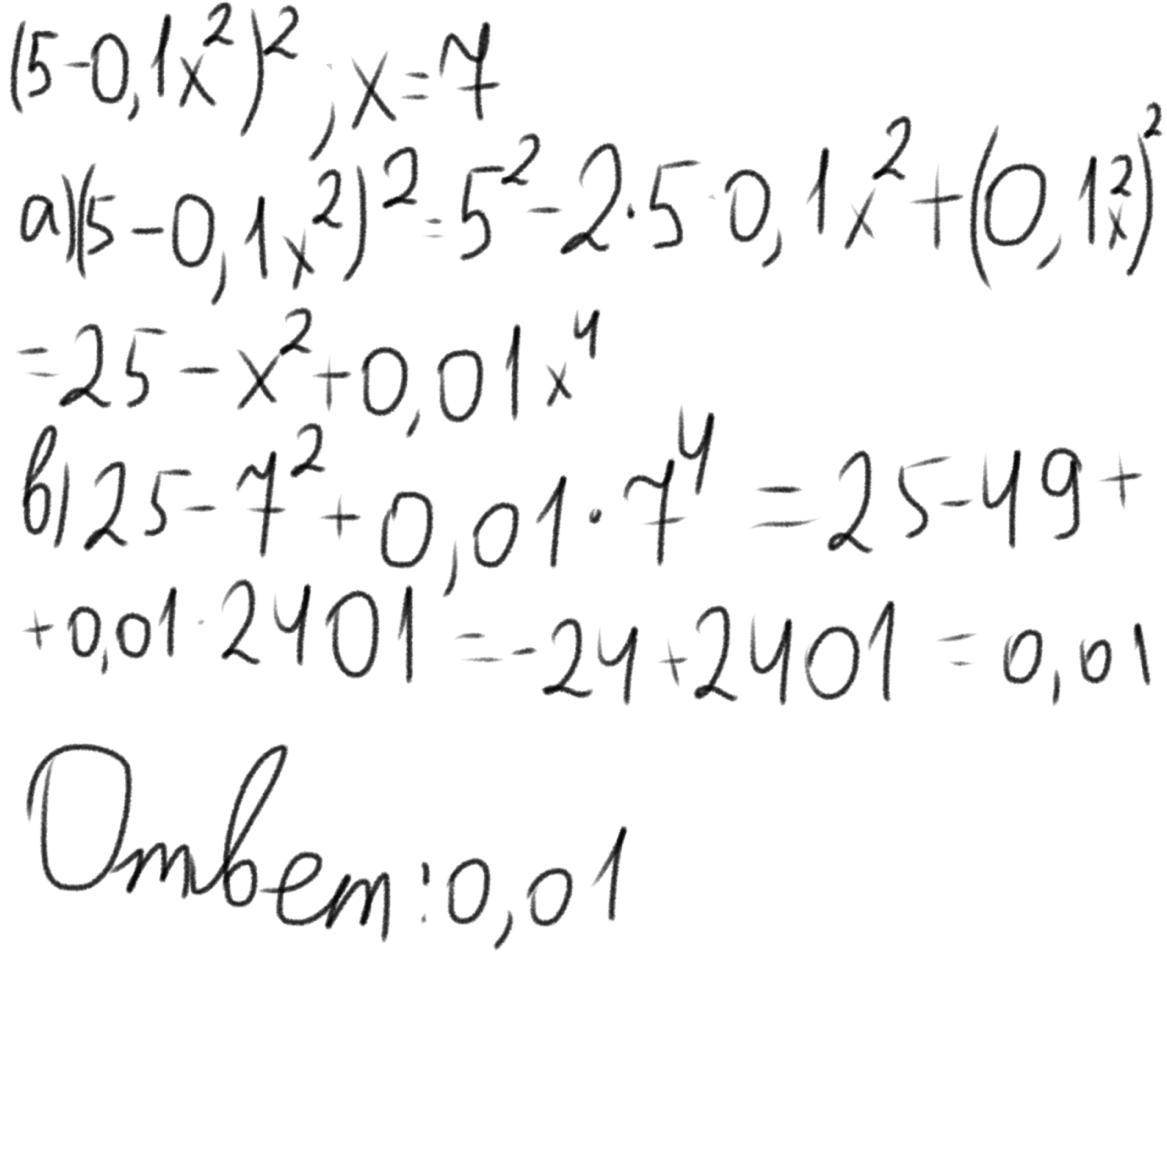 (5-0,1x²)², x=7
а)(5-0,1x²)²=5²-2·5·0,1x²+(0,1x²)²
=25-x²+0,01x⁴
в)25-7²+0,01·7⁴=25-49+
+0,01·2401=-24+2401=0,01
Ответ:0,01